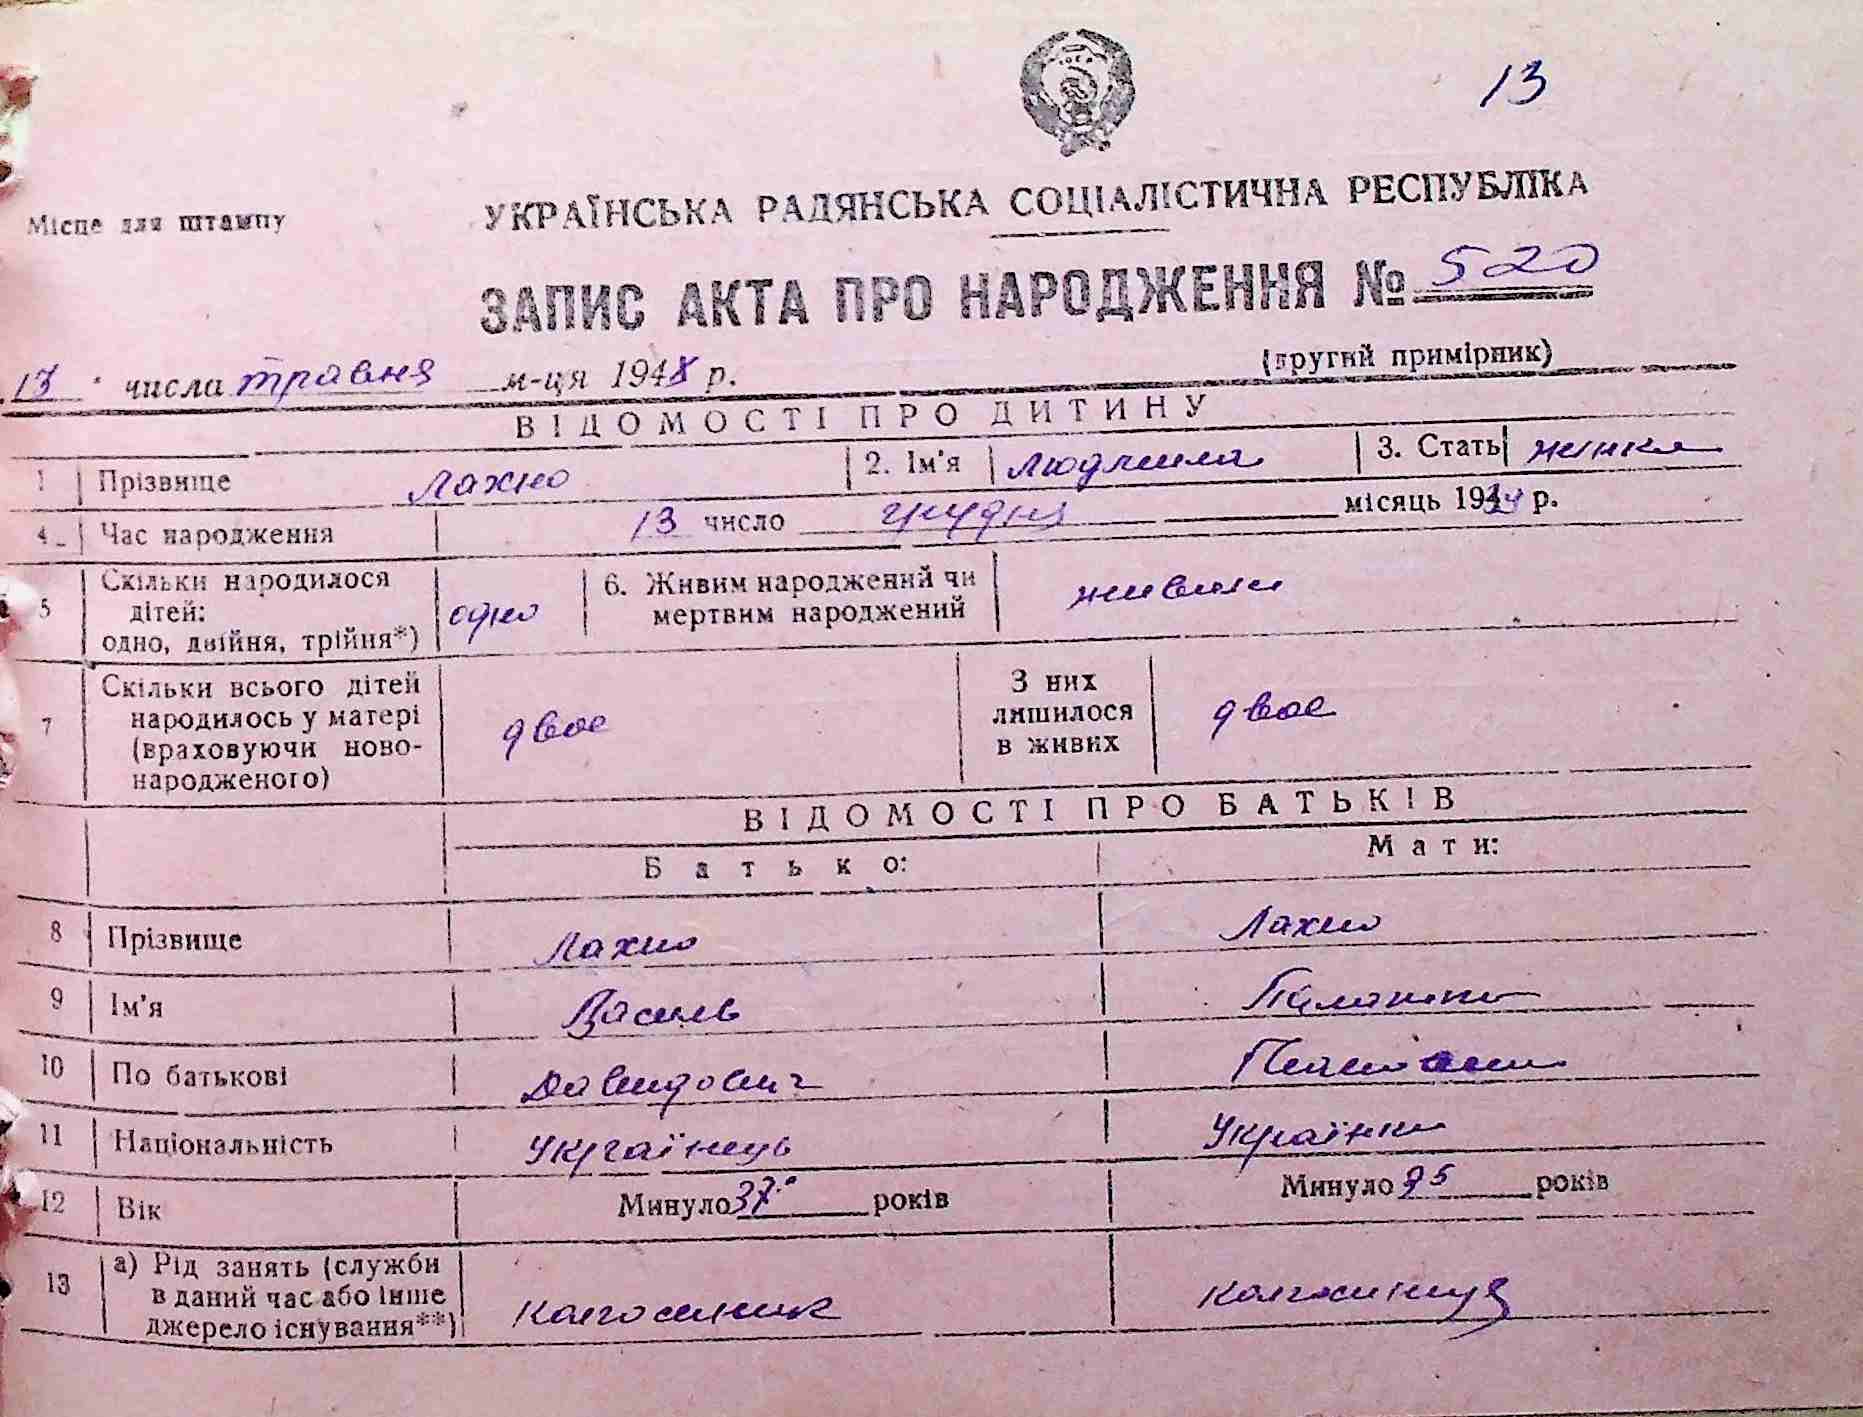 13
Місце для штампу
УКРАЇНСЬКА РАДЯНСЬКА СОЦІАЛІСТИЧНА РЕСПУБЛІКА
ЗАПИС АКТА ПРО НАРОДЖЕННЯ № 520
(другий примірник)
13 числа травня м-ця 1948 р.
ВІДОМОСТІ ПРО ДИТИНУ
1 Прізвище Лахно 2. Ім'я Людмила 3. Стать жінка
4 Час народження 13 число грудня місяць 19 р.
5 Скільки народилося дітей: одно, двійня, трійня*) одно 6. Живим народжений чи мертвим народжений живим
7 Скільки всього дітей народилось у матері (враховуючи новонародженого) двоє З них лишилося в живих двоє
ВІДОМОСТІ ПРО БАТЬКІВ
Батько: Мати:
8 Прізвище Лахно Лахно
9 Ім'я Василь
10 По батькові Давидович
11 Національність Українець Українка
12 Вік Минуло 37 років Минуло 25 років
13 а) Рід занять (служби в даний час або інше джерело існування**) Колгоспник Колгоспниця